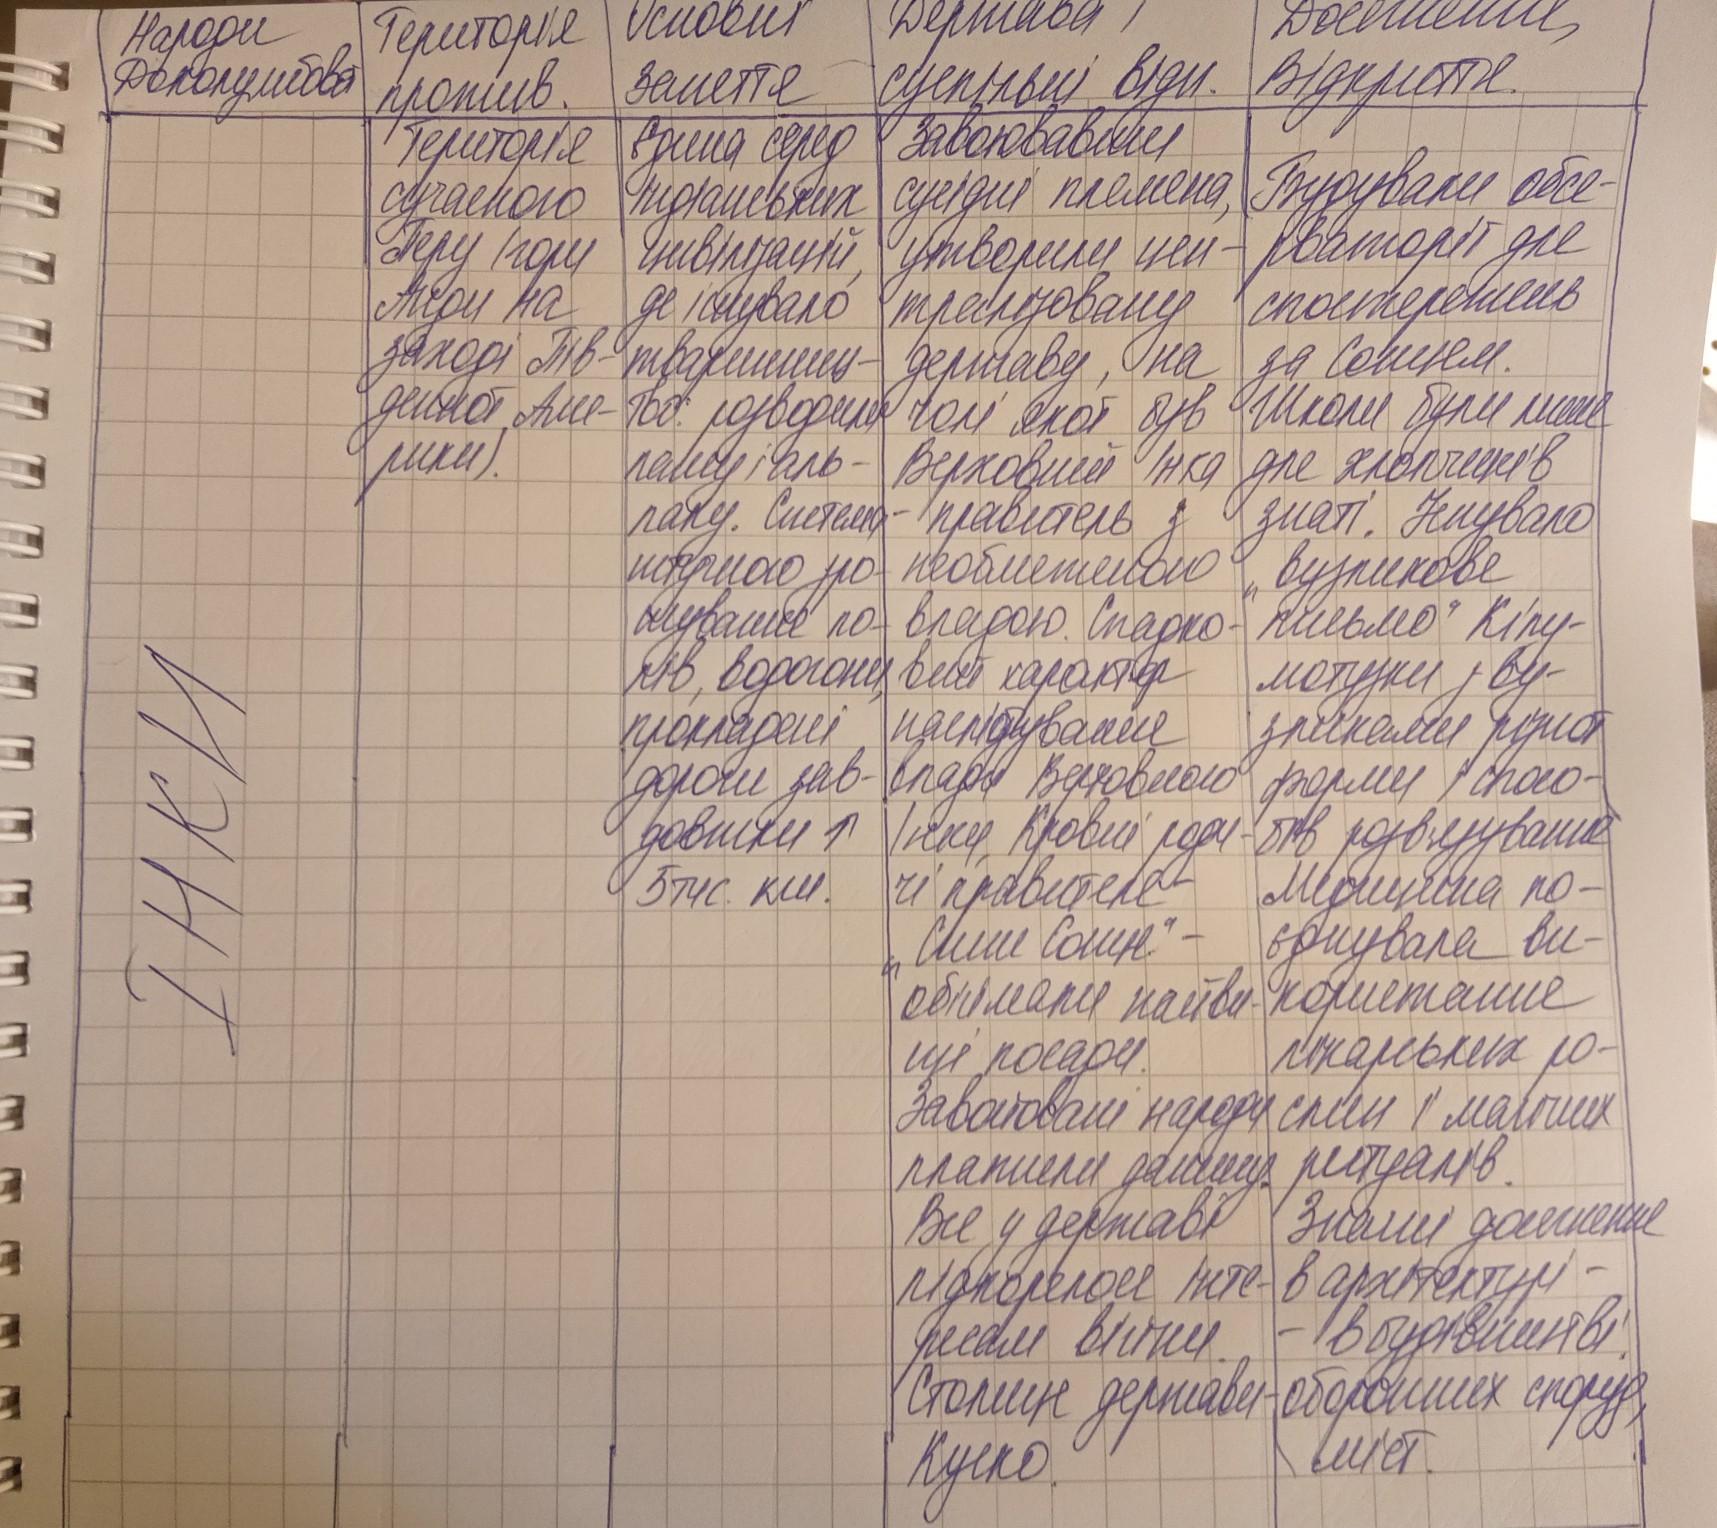 Народи
Доколумбової
Територія
прожив.
Основні
заняття
Держава і
суспільні відн.
Досягнення,
Відкриття.
ІНКИ
Територія
сучасного
Перу (гори
Анди на
заході Пів-
денної Аме-
рики).
Єдина серед
індіанських
цивілізацій,
де існувало
тваринниц-
тво: розводили
ламу і аль-
паку. Система
штучного зро-
шування по-
лів, водогони,
прокладені
дороги зав-
довжки ↑
5 тис. км.
Завоювавши
сусідні племена,
утворили цен-
тралізовану
державу, на
чолі якої був
Верховний Інка
- правитель з
необмеженою
владою. Спадко-
вий характер
наслідування
влади Верховного
Інки. Кровні роди-
чі правителя -
„Сини Сонця" -
обіймали найви-
щі посади.
Завойовані народи
платили данину.
Все у державі
підкорялося інте-
ресам війни.
Столиця держави -
Куско.
Будували обсе-
рваторії для
спостережень
за Сонцем.
Школи були лише
для хлопчиків
знаті. Існувало
„вузликове
письмо" Кіпу -
мотузки з ву-
зликами різної
форми і спосо-
бів розв'язування
Медицина по-
єднувала ви-
користання
лікарських ро-
слин і магічних
ритуалів.
Значні досягнення
в архітектурі -
- в будівництві
оборонних споруд,
міст.